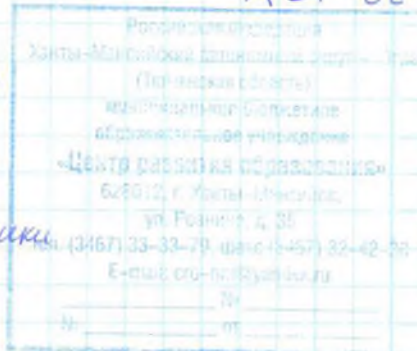 Российская Федерация
Ханты-Мансийский автономный округ -
(Тюменская область)
муниципальное бюджетное
образовательное учреждение
«Центр развития образования»
628012, г. Ханты-Мансийск,
ул. д. 35
тел. (3467) 33-33-79, факс (3467) 32-
E-mail:
№
№ от